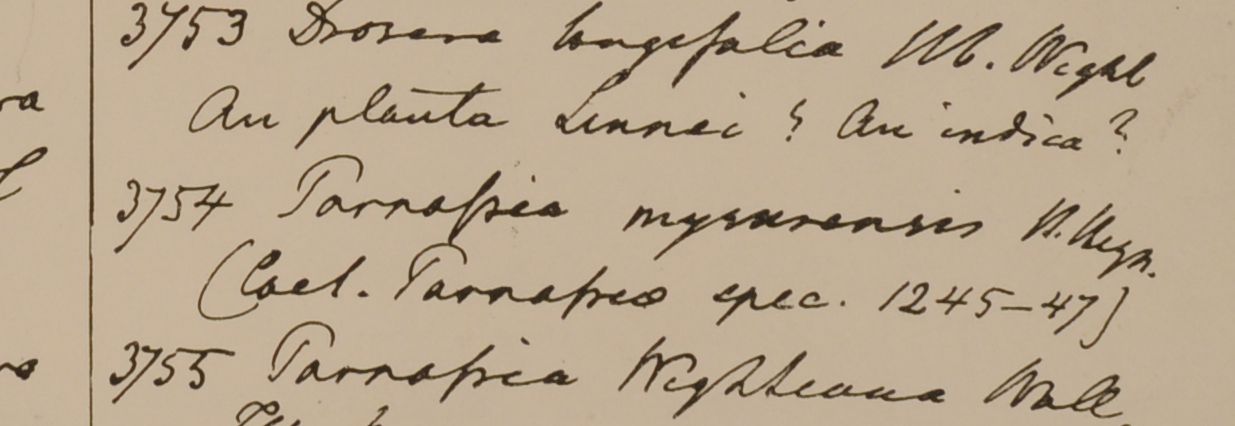 3753 Drosera longifolia Hb. Wight
An planta Linnei? An indica?
3754 Parnassia mysurensis H. Heyn.
(Cael. Parnassiae spec. 1245-47)
3755 Parnassia Wightiana Wall.